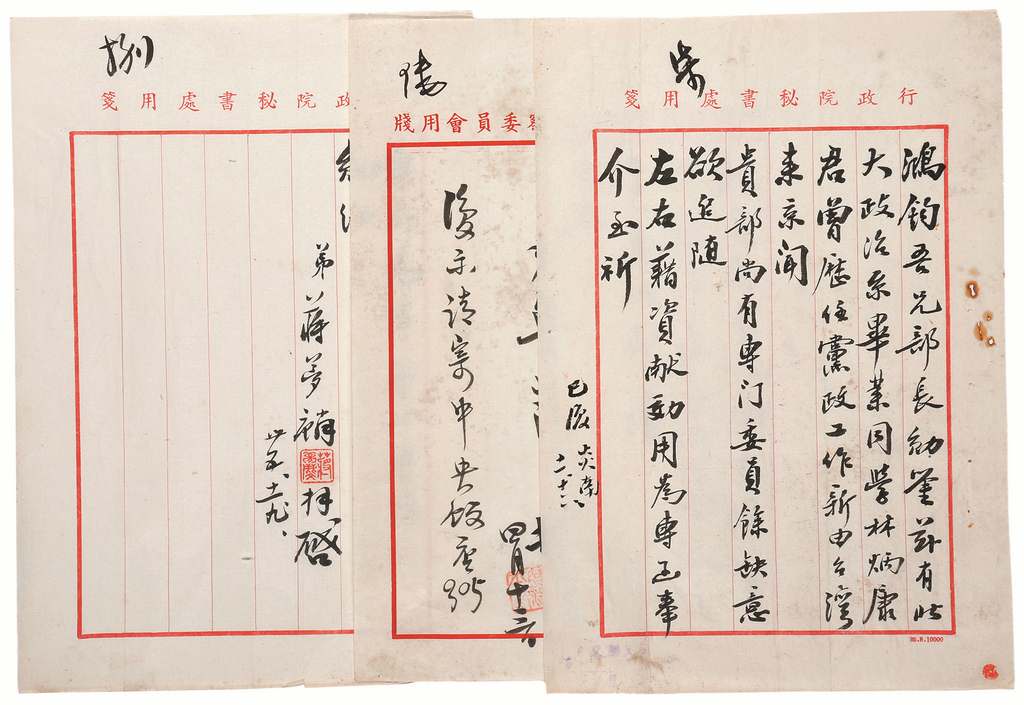 行政院秘書處用箋
鴻鈞吾兄部長勛鑒茲有北
大政治系畢業同學林炳康
君曾歷任黨政工作新由台灣
来京聞
貴部尚有專门委員餘缺意
欲追随
左右藉資献効用為專函奉
介至祈
已復
委員會用牋
四月十三
復示請寄中央饭店395
捌
政院秘書處用箋
弟蔣夢麟拜啓
卅五、十一、九、